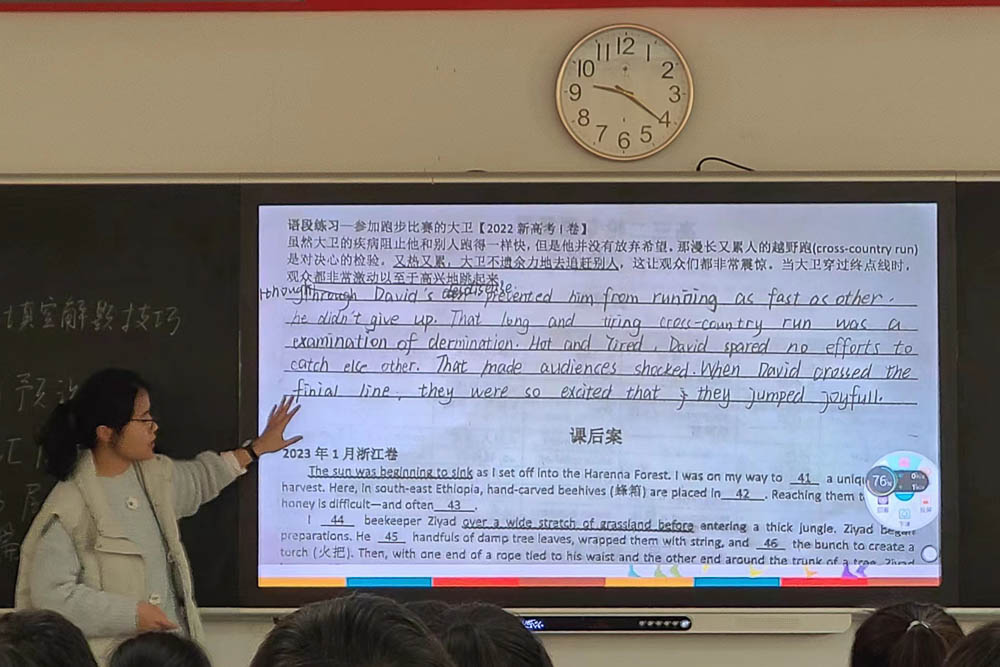 12
11 1
10 2
9 3
8 4
7 6 5
填空解题技巧
语段练习—参加跑步比赛的大卫【2022 新高考 I 卷】
虽然大卫的疾病阻止他和别人跑得一样快，但是他并没有放弃希望，那漫长又累人的越野跑(cross-country run)
是对决心的检验。又热又累，大卫不遗余力地去追赶别人，这让观众们都非常震惊。当大卫穿过终点线时，
观众都非常激动以至于高兴地跳起来。
through David's disease prevented him from running as fast as other.
he didn't give up. That long and tiring cross-country run was a
examination of dermination. Hot and Tired, David spared no efforts to
catch else other. That made audiences shocked. When David crossed the
finial line, they were so excited that they jumped joyfull.
课后案
2023 年 1 月浙江卷
The sun was beginning to sink as I set off into the Harenna Forest. I was on my way to 41 a
harvest. Here, in south-east Ethiopia, hand-carved beehives (蜂箱) are placed in 42 . Reaching them
honey is difficult—and often 43 .
I 44 beekeeper Ziyad over a wide stretch of grassland before entering a thick jungle. Ziyad began
preparations. He 45 handfuls of damp tree leaves, wrapped them with string, and 46 the bunch to create a
torch (火把). Then, with one end of a rope tied to his waist and the other end around the trunk of a tree, Ziyad
76